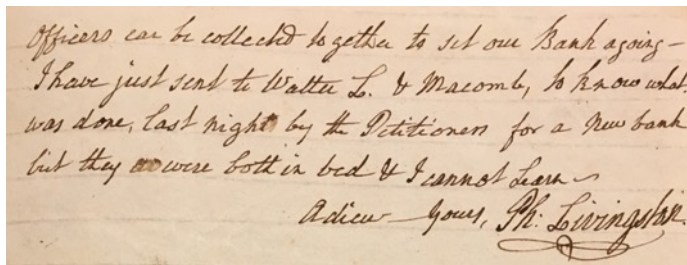 Officers can be collected together to set our Bank agoing –
I have just sent to Walter L. & Macomb, to know what
was done, last night by the Petitioners for a New bank
but they were both in bed & I cannot Learn –
Adieu – Yours, Ph: Livingston.